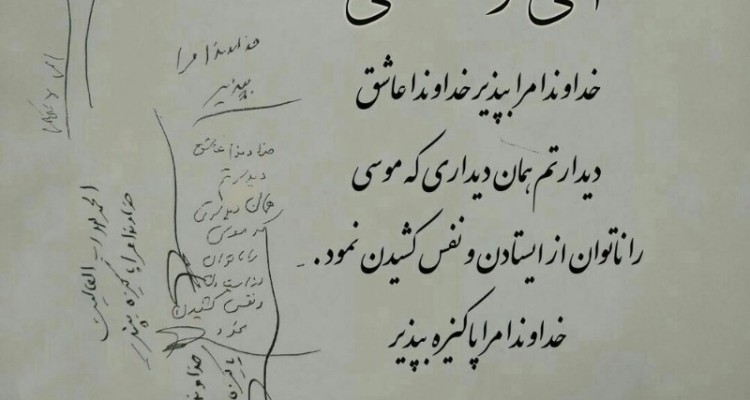 خداوندا مرا بپذیر خداوندا عاشق
دیدارتم همان دیداری که موسی
را ناتوان از ایستادن و نفس کشیدن نمود.
خداوندا مرا پاکیزه بپذیر
خداوندا مرا
بپذیر
خداوندا عاشق
دیدارتم
همان دیداری
که موسی
را ناتوان
از ایستادن
و نفس کشیدن
نمود
الحمدلله رب العالمین
خداوندا مرا پاکیزه بپذیر